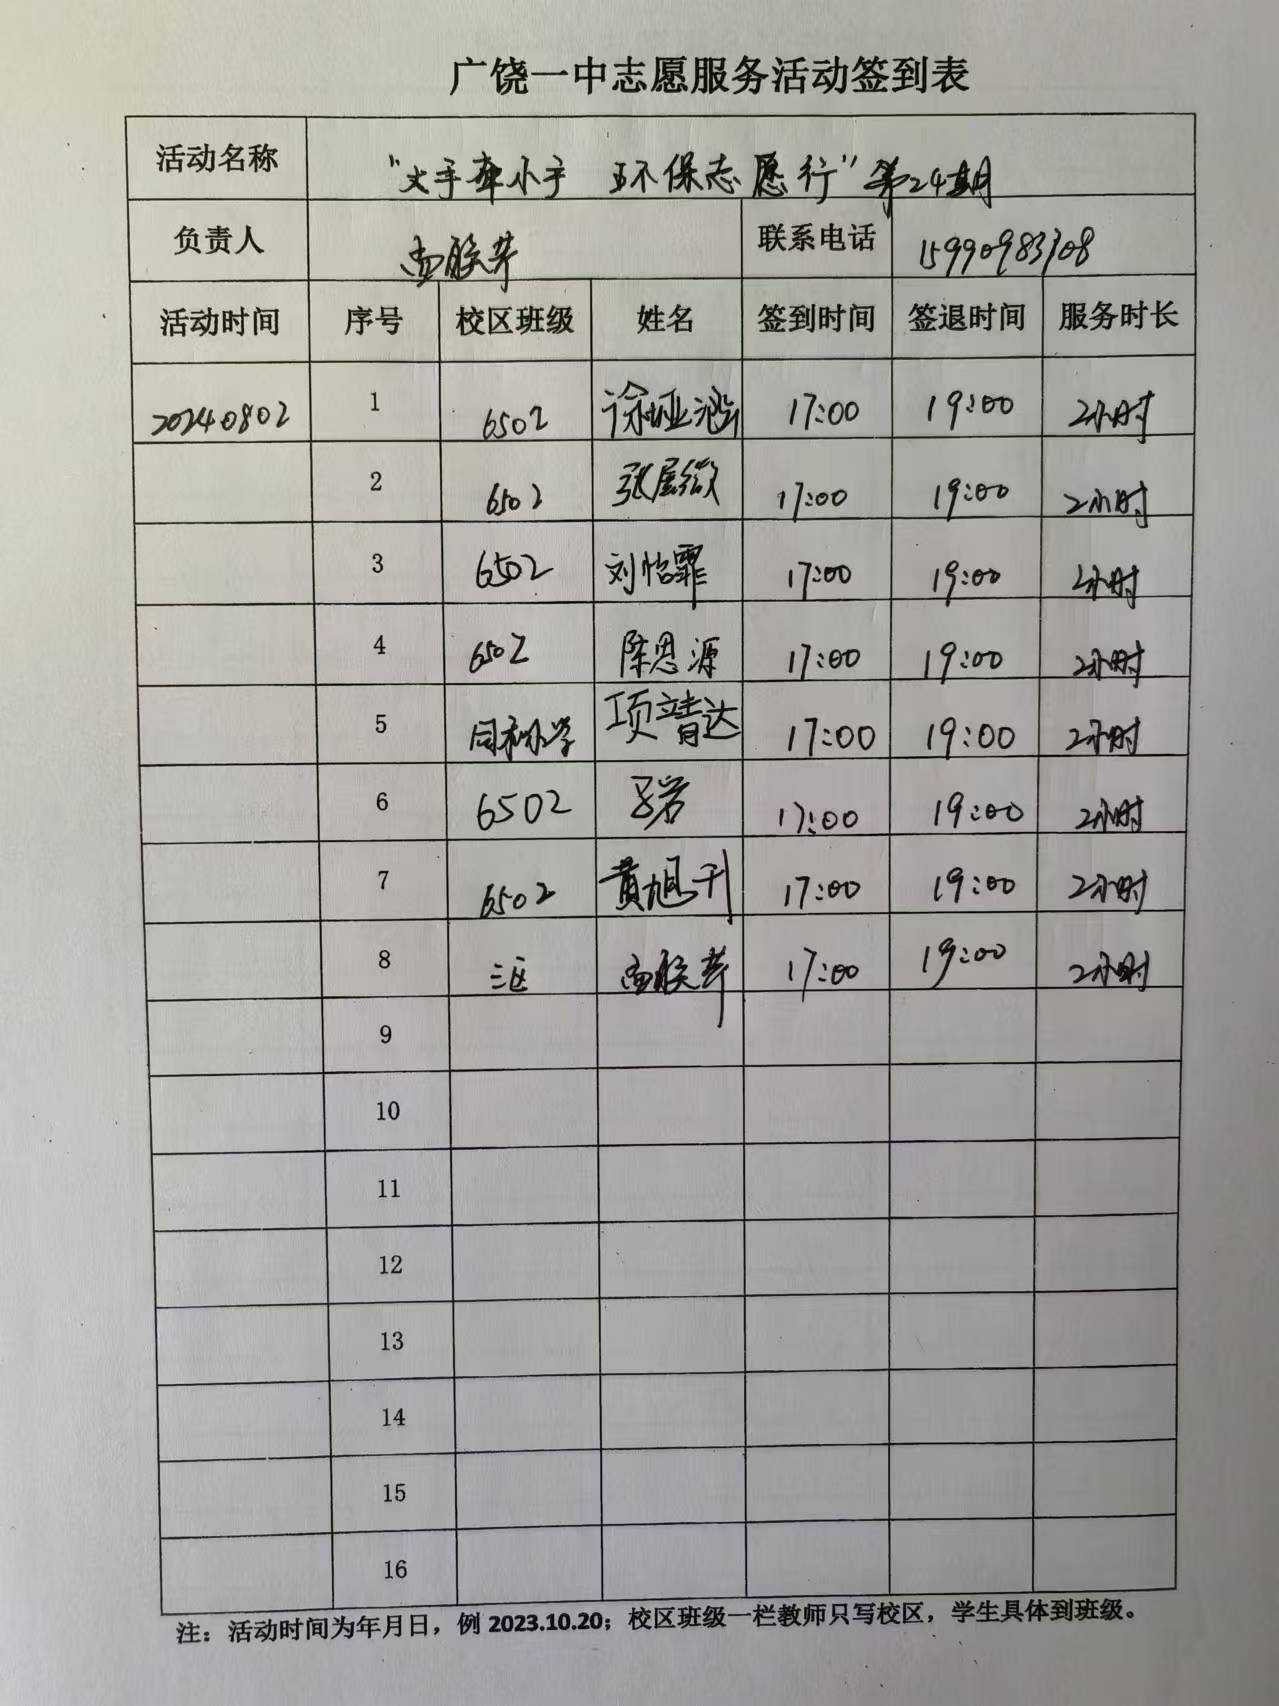 广饶一中志愿服务活动签到表
活动名称 “大手牵小手 环保志愿行”第24期
负责人 联系电话 15990983708
活动时间 序号 校区班级 姓名 签到时间 签退时间 服务时长
20240802 1 6502 17:00 19:00 2小时
2 6502 17:00 19:00 2小时
3 6502 刘怡霏 17:00 19:00 2小时
4 6502 陈恩源 17:00 19:00 2小时
5 同和小学 项靖达 17:00 19:00 2小时
6 6502 17:00 19:00 2小时
7 6502 17:00 19:00 2小时
8 三区 17:00 19:00 2小时
9
10
11
12
13
14
15
16
注：活动时间为年月日，例 2023.10.20；校区班级一栏教师只写校区，学生具体到班级。